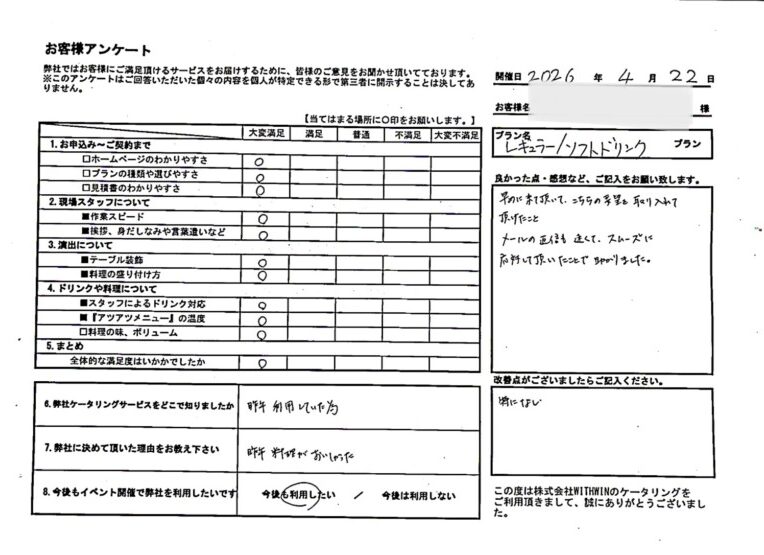 お客様アンケート
弊社ではお客様にご満足頂けるサービスをお届けするために、皆様のご意見をお聞かせ頂いております。
※このアンケートはご回答いただいた個々の内容を個人が特定できる形で第三者に開示することは決してあ
りません。
開催日 2026 年 4 月 22 日
お客様名 様
プラン名
レギュラー/ソフトドリンク プラン
【当てはまる場所に○印をお願いします。】
大変満足 満足 普通 不満足 大変不満足
1.お申込み～ご契約まで
□ホームページのわかりやすさ ○
□プランの種類や選びやすさ ○
□見積書のわかりやすさ ○
2.現場スタッフについて
■作業スピード ○
■挨拶、身だしなみや言葉遣いなど ○
3.演出について
■テーブル装飾 ○
■料理の盛り付け方 ○
4.ドリンクや料理について
■スタッフによるドリンク対応 ○
■『アツアツメニュー』の温度 ○
□料理の味、ボリューム ○
5.まとめ
全体的な満足度はいかかでしたか ○
良かった点・感想など、ご記入をお願い致します。
早めに来て頂いて、こちらの希望を取り入れて
頂けたこと
メールの返信も速くて、スムーズに
応対して頂いたことで助かりました。
改善点がございましたらご記入ください。
特になし
6.弊社ケータリングサービスをどこで知りましたか 昨年利用していた為
7.弊社に決めて頂いた理由をお教え下さい 昨年 料理がおいしかった
8.今後もイベント開催で弊社を利用したいです 今後も利用したい / 今後は利用しない
この度は株式会社WITHWINのケータリングを
ご利用頂きまして、誠にありがとうございまし
た。